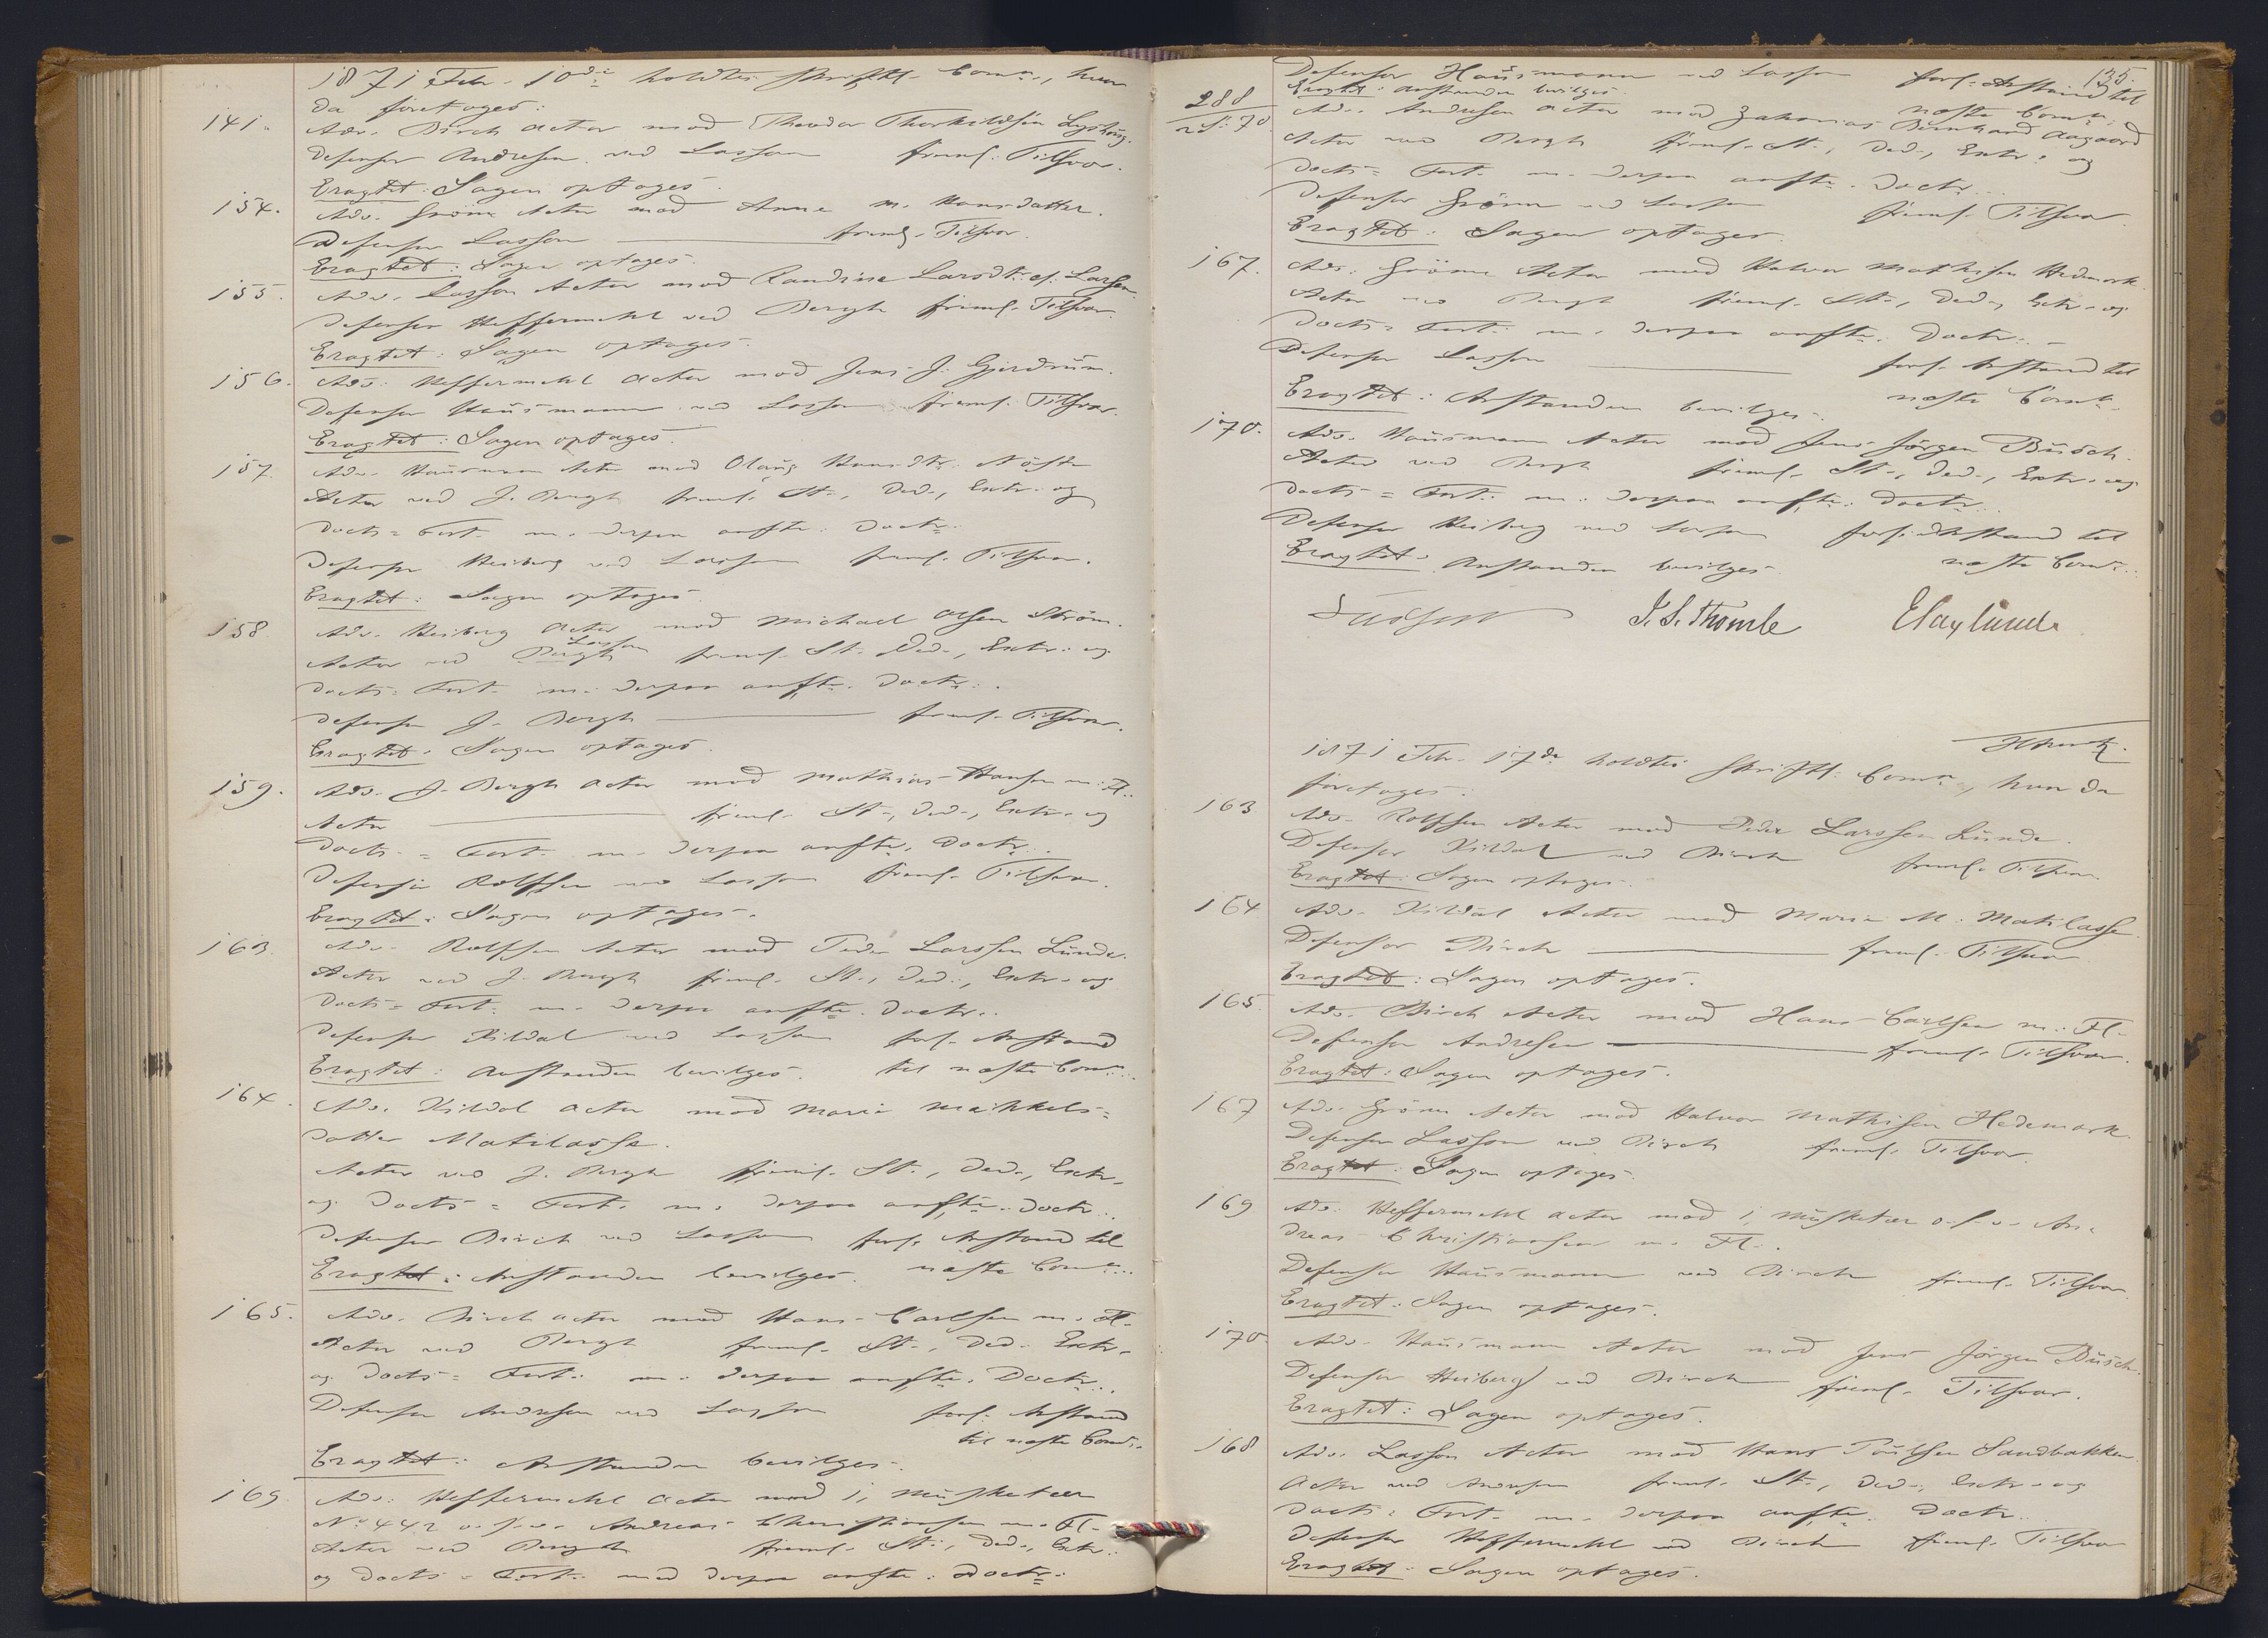 1871 Febr. 10de holdtes skriftl. Comn., hvor
da foretoges:
141. Adv. Birch Actor mod Theodor Thorkildsen
Defensor Andresen ved Lasson freml. Tilsvar.
Eragtet: Sagen optages.
154. Adv. Grönn Actor mod Anne M. Hansdatter.
Defensor Lasson freml. Tilsvar.
Eragtet: Sagen optages.
155. Adv. Lasson Actor mod Randine Larsdtr. ell. Larsen.
Defensor Heffermehl ved Bergh freml. Tilsvar.
Eragtet: Sagen optages.
156. Adv. Heffermehl Actor mod Jens J. Gjerdrum.
Defensor Hausmann ved Lasson freml. Tilsvar.
Eragtet: Sagen optages.
157. Adv. Hausmann Actor mod Olaug Hansdtr.
Actor ved J. Bergh freml. St., Ded., Extr. og
Docts = Fort. m. derpaa anfte. Doctr.
Defensor Heiberg ved Lasson freml. Tilsvar.
Eragtet: Sagen optages.
158. Adv. Heiberg Actor mod Michael Olsen Ström.
Actor ved Bergh Lasson freml. St. Ded., Extr. og
Docts = Fort. m. derpaa anfte. Doctr.
Defensor J. Bergh freml. Tilsvar.
Eragtet: Sagen optages.
159. Adv. J. Bergh Actor mod Mathias Hansen m. Fl.
Actor freml. St., Ded., Extr. og
Docts = Fort. m. derpaa anfte. Doctr.
Defensor Rolfsen ved Lasson freml. Tilsvar.
Eragtet: Sagen optages.
163. Adv. Rolfsen Actor mod Peder Larssen Lunde.
Actor ved J. Bergh freml. St., Ded., Extr. og
Docts = Fort. m. derpaa anfte. Doctr.
Defensor Kildal ved Lasson forl. Anstand
Eragtet: Anstanden bevilges. til næste Comn.
164. Adv. Kildal Actor mod Maria Maikkels=
datter Matilassa.
Actor ved J. Bergh freml. St., Ded., Extr.
og Docts = Fort. m. derpaa anfte. Doctr.
Defensor Birch ved Lasson forl. Anstand til
Eragtet: Anstanden bevilges. næste Comn.
165. Adv. Birch Actor mod Hans Carlsen m. Fl.
Actor ved Bergh freml. St., Ded. Extr.
og Docts = Fort. m. derpaa anfte. Doctr.
Defensor Andresen ved Lasson forl. Anstand
til næste Comn.
Eragtet: Anstanden bevilges.
169. Adv. Heffermehl Actor mod 1, Musketeer
No 442 o. s. v. Andreas Christiansen m. Fl.
Actor ved Bergh freml. St., Ded., Extr.
og Docts = Fort. med derpaa anfte. Doctr.
135.
Defensor Hausmann ved Lasson forl. Anstand til
Eragtet: Anstanden bevilges. næste Comn.
288/2 S. 70 Adv. Andresen Actor mod Zakarias Bernhard Aagaard
Actor ved Bergh freml. St., Ded., Extr. og
Docts = Fort. m. derpaa anfte. Doctr.
Defensor Grönn ved Lasson freml. Tilsvar
Eragtet: Sagen optages.
167. Adv. Grönn Actor mod Halvor Mathisen Hedemark.
Actor ved Bergh freml. St., Ded., Extr. og
Docts = Fort. m. derpaa anfte. Doctr.
Defensor Lasson forl. Anstand til
Eragtet: Anstanden bevilges. næste Comn.
170. Adv. Hausmann Actor mod Jens Jörgen Busch.
Actor ved Bergh freml. St., Ded., Extr. og
Docts = Fort. m. derpaa anfte. Doctr.
Defensor Heiberg ved Lasson forl. Anstand til
Eragtet: Anstanden bevilges. næste Comn.
Lasson J. S. Thomle E Laylund
1871 Febr. 17de holdtes skriftl. Comn., hvor da
foretoges:
163 Adv. Rolfsen Actor mod Peder Larssen Lunde.
Defensor Kildal ved Birch freml. Tilsvar.
Eragtet: Sagen optages.
164 Adv. Kildal Actor mod Maria M. Matilassa.
Defensor Birch freml. Tilsvar
Eragtet: Sagen optages.
165 Adv. Birch Actor mod Hans Carlsen m. Fl.
Defensor Andresen freml. Tilsvar.
Eragtet: Sagen optages.
167 Adv. Grönn Actor mod Halvor Mathisen Hedemark.
Defensor Lasson ved Birch freml. Tilsvar.
Eragtet: Sagen optages.
169 Adv. Heffermehl Actor mod 1, Musketeer o. s. v. An=
dreas Christiansen m. Fl.
Defensor Hausmann ved Birch freml. Tilsvar
Eragtet: Sagen optages.
170. Adv. Hausmann Actor mod Jens Jörgen Busch.
Defensor Heiberg ved Birch freml. Tilsvar.
Eragtet: Sagen optages.
168 Adv. Lasson Actor mod Hans Paulsen Sandbakken.
Actor ved Andresen freml. St., Ded., Extr. og
Docts = Fort. m. derpaa anfte. Doctr.
Defensor Heffermehl ved Birch freml. Tilsvar
Eragtet: Sagen optages.